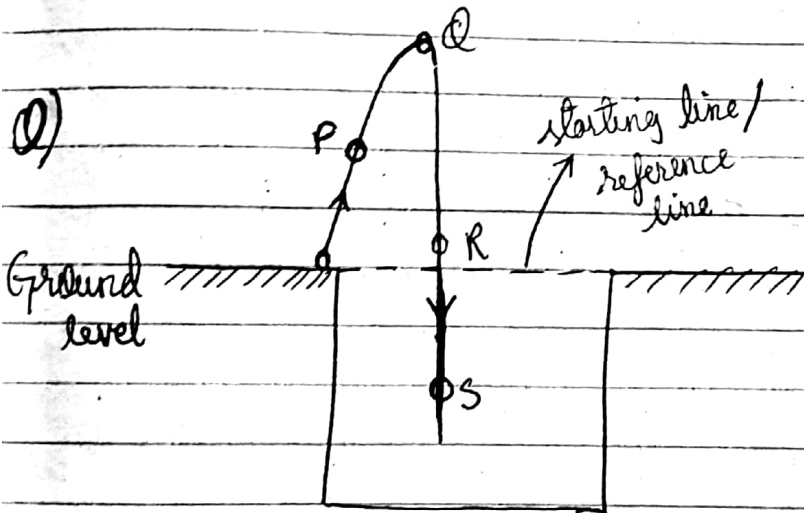 Q
Q)
P
starting line/
reference
line
R
Ground
level
S